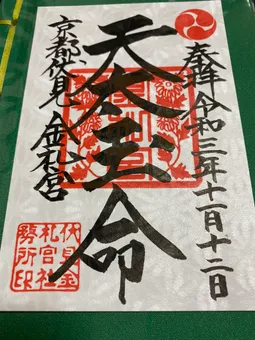 奉拝 令和三年十一月十二日
天太玉命
京都伏見 金札宮
伏見金
札宮社
務所印